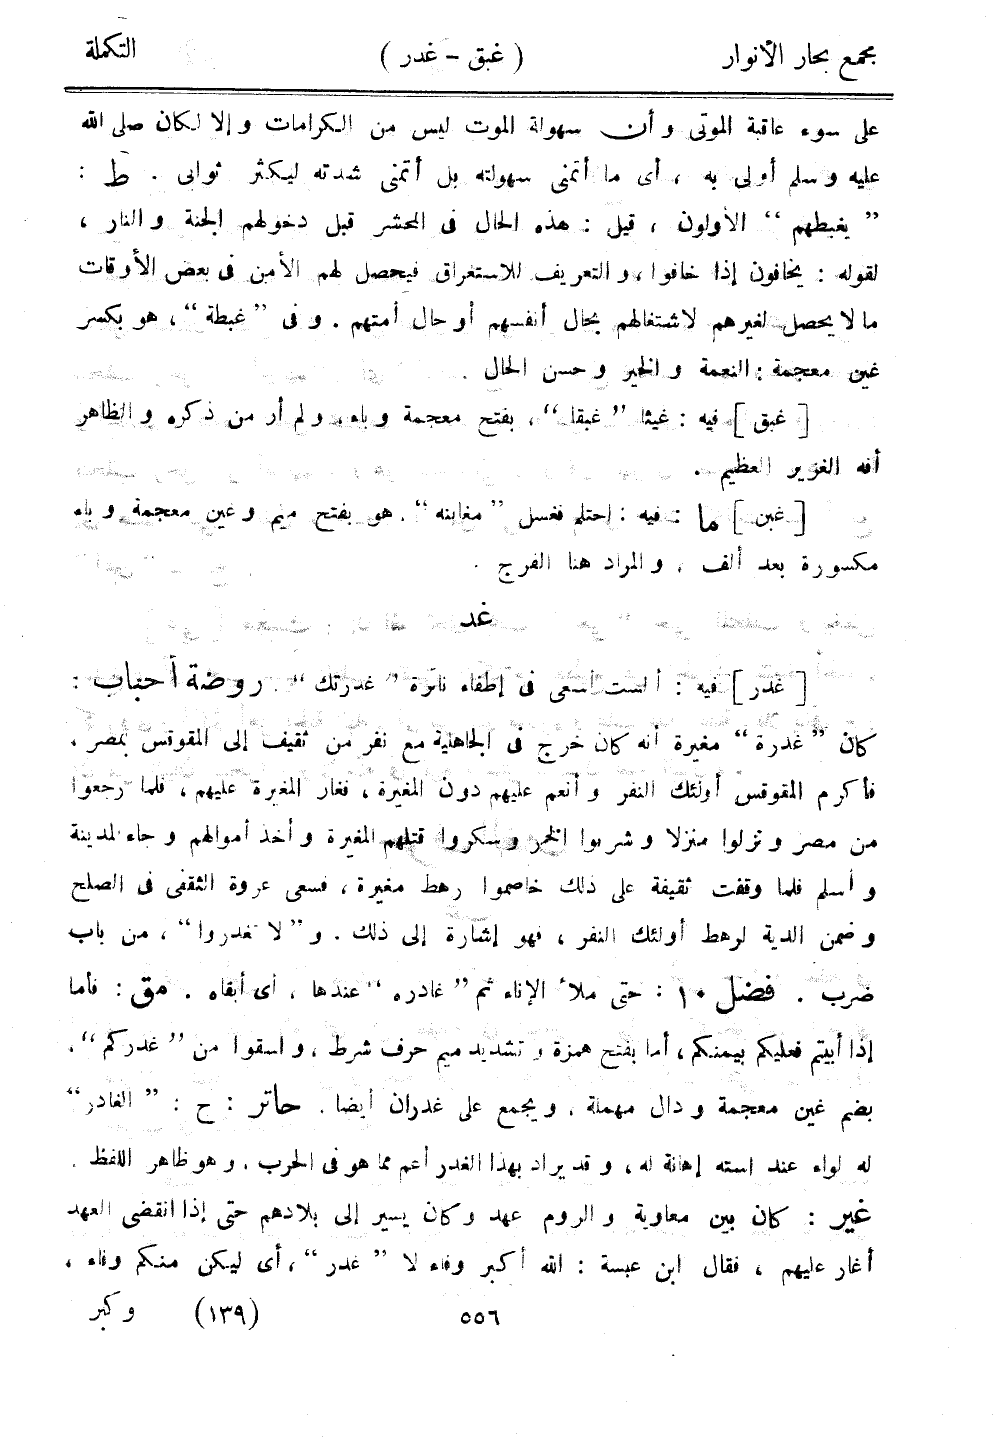 مجمع بحار الأنوار ( غبق – غدر ) التكملة
على سوء عاقبة الموتى و أن سهولة الموت ليس من الكرامات و إلا لكان صلى الله
عليه و سلم أولى به ، أى ما أتمنى سهولته بل أتمنى شدته ليكثر ثوابى . ط :
” يغبطهم “ الأولون ، قيل : هذه الحال فى المحشر قبل دخولهم الجنة و النار ،
لقوله : يخافون إذا خافوا ، و التعريف للاستغراق فيحصل لهم الأمن فى بعض الأوقات
ما لا يحصل لغيرهم لاشتغالهم بحال أنفسهم أو حال أمتهم . و فى ” غبطة “ ، هو بكسر
غين معجمة : النعمة و الخير و حسن الحال .
[ غبق ] فيه : غيثا ” غبقا “ ، بفتح معجمة و باء ، و لم أر من ذكره و الظاهر
أنه الغزير العظيم .
[ غبن ] ما : فيه : احتلم فغسل ” مغابنه “ . هو بفتح ميم و غين معجمة و باء
مكسورة بعد ألف ، و المراد هنا الفرج .
غد
[ غدر ] فيه : ألست أسعى فى إطفاء نائرة ” غدرتك “ . روضة أحباب :
كان ” غدرة “ مغيرة أنه كان خرج فى الجاهلية مع نفر من ثقيف إلى المقوقس بمصر ،
فأكرم المقوقس أولئك النفر و أنعم عليهم دون المغيرة ، فغار المغيرة عليهم ، فلما رجعوا
من مصر و نزلوا منزلا و شربوا الخمر و سكروا قتلهم المغيرة و أخذ أموالهم و جاء لمدينة
و أسلم فلما وقفت ثقيفة على ذلك خاصموا رهط مغيرة ، فسعى عروة الثقفى فى الصلح
و ضمن الدية لرهط أولئك النفر ، فهو إشارة إلى ذلك . و ” لا تغدروا “ ، من باب
ضرب . فضل ١٠ : حتى ملأ الإناء ثم ” غادره “ عندها ، أى أبقاه . مق : فأما
إذا أبيتم فعليكم بيمنكم ، أما بفتح همزة و تشديد ميم حرف شرط ، و اسقوا من ” غدركم “ ،
بضم غين معجمة و دال مهملة ، و يجمع على غدران أيضا . حاتر : ح : ” الغادر “
له لواء عند استه إهانة له ، و قد يراد بهذا الغدر أعم مما هو فى الحرب . و هو ظاهر اللفظ .
غير : كان بين معاوية و الروم عهد و كان يسير إلى بلادهم حتى إذا انقضى العهد
أغار عليهم ، فقال ابن عبسة : الله أكبر وفاء لا ” غدر “ ، أى ليكن منكم وفاء ،
٥٥٦ (١٣٩) و كبر